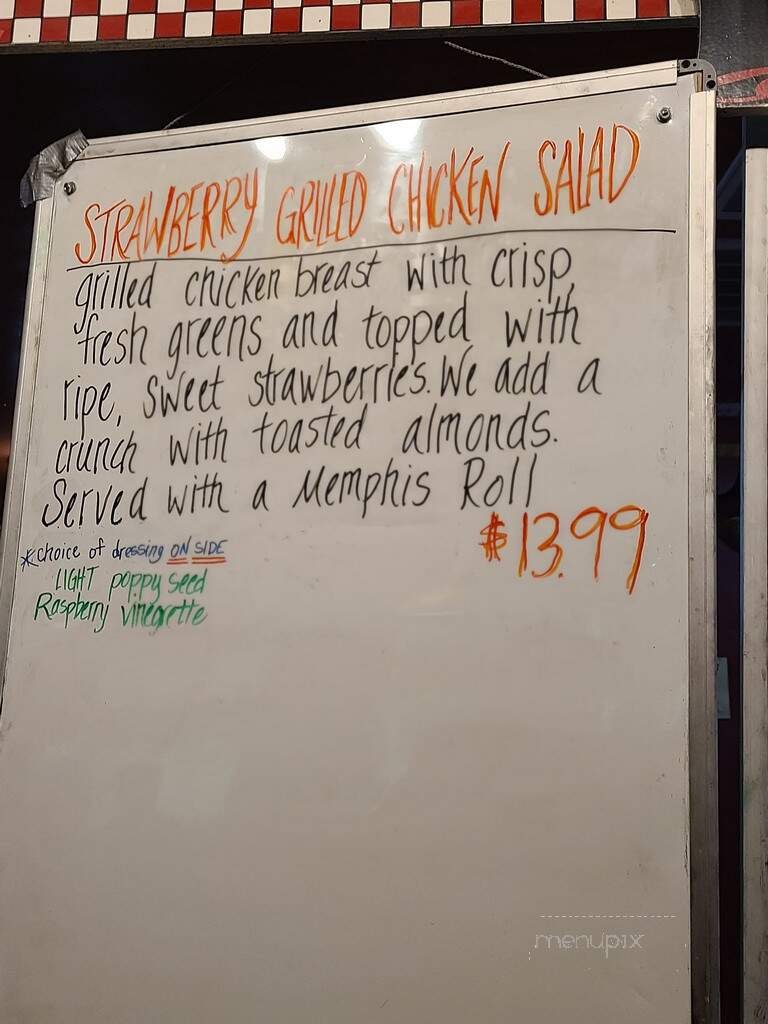 STRAWBERRY GRILLED CHICKEN SALAD
grilled chicken breast with crisp,
fresh greens and topped with
ripe, sweet strawberries. We add a
crunch with toasted almonds.
Served with a Memphis Roll
$13.99
*choice of dressing ON SIDE
LIGHT poppy seed
Raspberry vinegrette
menupix